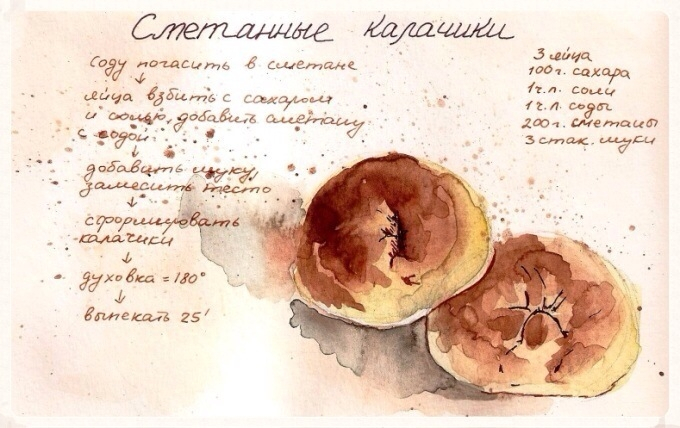 Сметанные калачики
Соду погасить в сметане
↓
яйца взбить с сахаром
и солью, добавить сметану
с содой
↓
добавить муку,
замесить тесто
↓
сформировать
калачики
↓
духовка = 180°
↓
выпекать 25'
3 яйца
100 г. сахара
1 ч.л. соли
1 ч.л. соды
200 г. сметаны
3 стак. муки